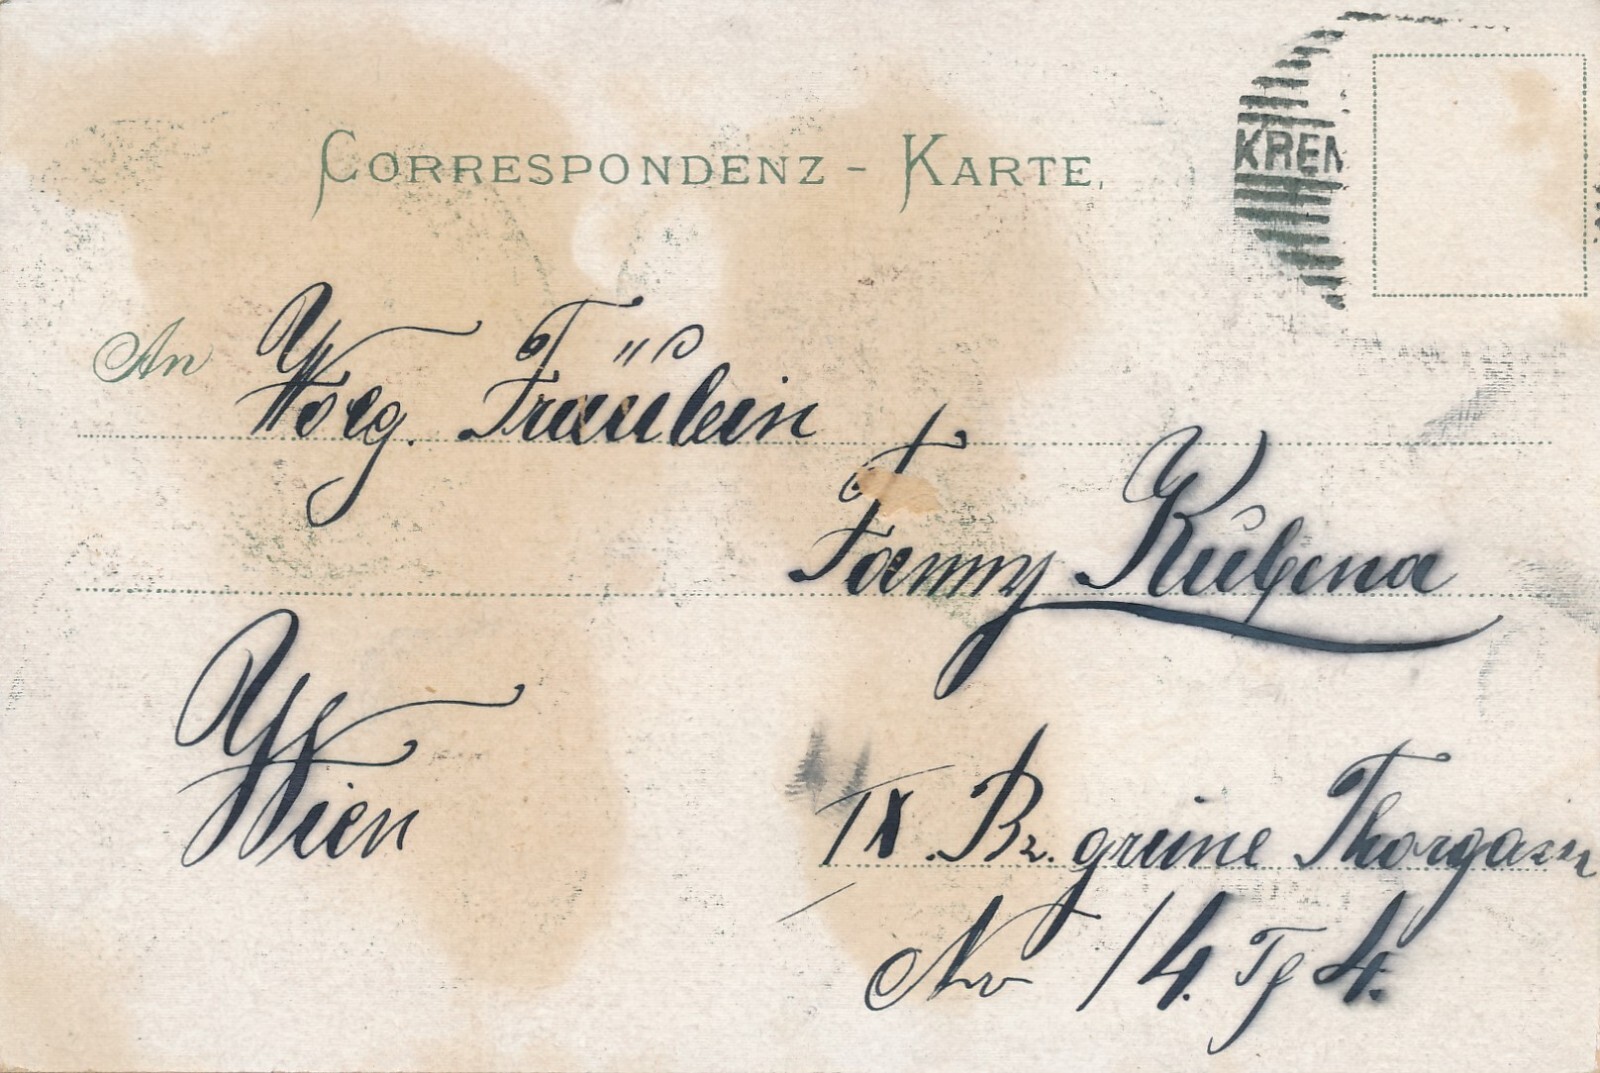 CORRESPONDENZ - KARTE.
KREM
An Wolg. Fräulein
Fanny
Wien
IX. Bz. grüne Thorgasse
No 14. Tf 4.